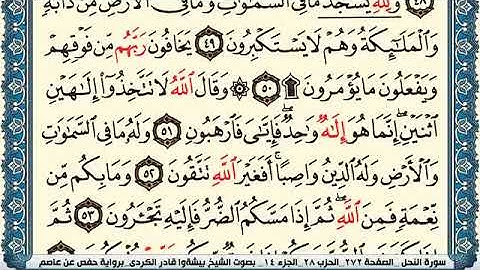 ٤٨ وَلِلَّهِ يَسْجُدُ مَا فِى ٱلسَّمَٰوَٰتِ وَمَا فِى ٱلْأَرْضِ مِن دَآبَّةٍ
وَٱلْمَلَٰٓئِكَةُ وَهُمْ لَا يَسْتَكْبِرُونَ ٤٩ يَخَافُونَ رَبَّهُم مِّن فَوْقِهِمْ
وَيَفْعَلُونَ مَا يُؤْمَرُونَ ۩ ٥٠ ۞ وَقَالَ ٱللَّهُ لَا تَتَّخِذُوٓا۟ إِلَٰهَيْنِ
ٱثْنَيْنِ ۖ إِنَّمَا هُوَ إِلَٰهٌ وَٰحِدٌ ۖ فَإِيَّٰىَ فَٱرْهَبُونِ ٥١ وَلَهُۥ مَا فِى ٱلسَّمَٰوَٰتِ
وَٱلْأَرْضِ وَلَهُ ٱلدِّينُ وَاصِبًا ۚ أَفَغَيْرَ ٱللَّهِ تَتَّقُونَ ٥٢ وَمَا بِكُم مِّن
نِّعْمَةٍ فَمِنَ ٱللَّهِ ۖ ثُمَّ إِذَا مَسَّكُمُ ٱلضُّرُّ فَإِلَيْهِ تَجْـَٔرُونَ ٥٣ ثُمَّ
سورة النحل _ الصفحة ٢٧٢ _ الحزب ٢٨ _ الجزء ١٤ _ بصوت الشيخ بيشةوا قادر الكردى _ برواية حفص عن عاصم